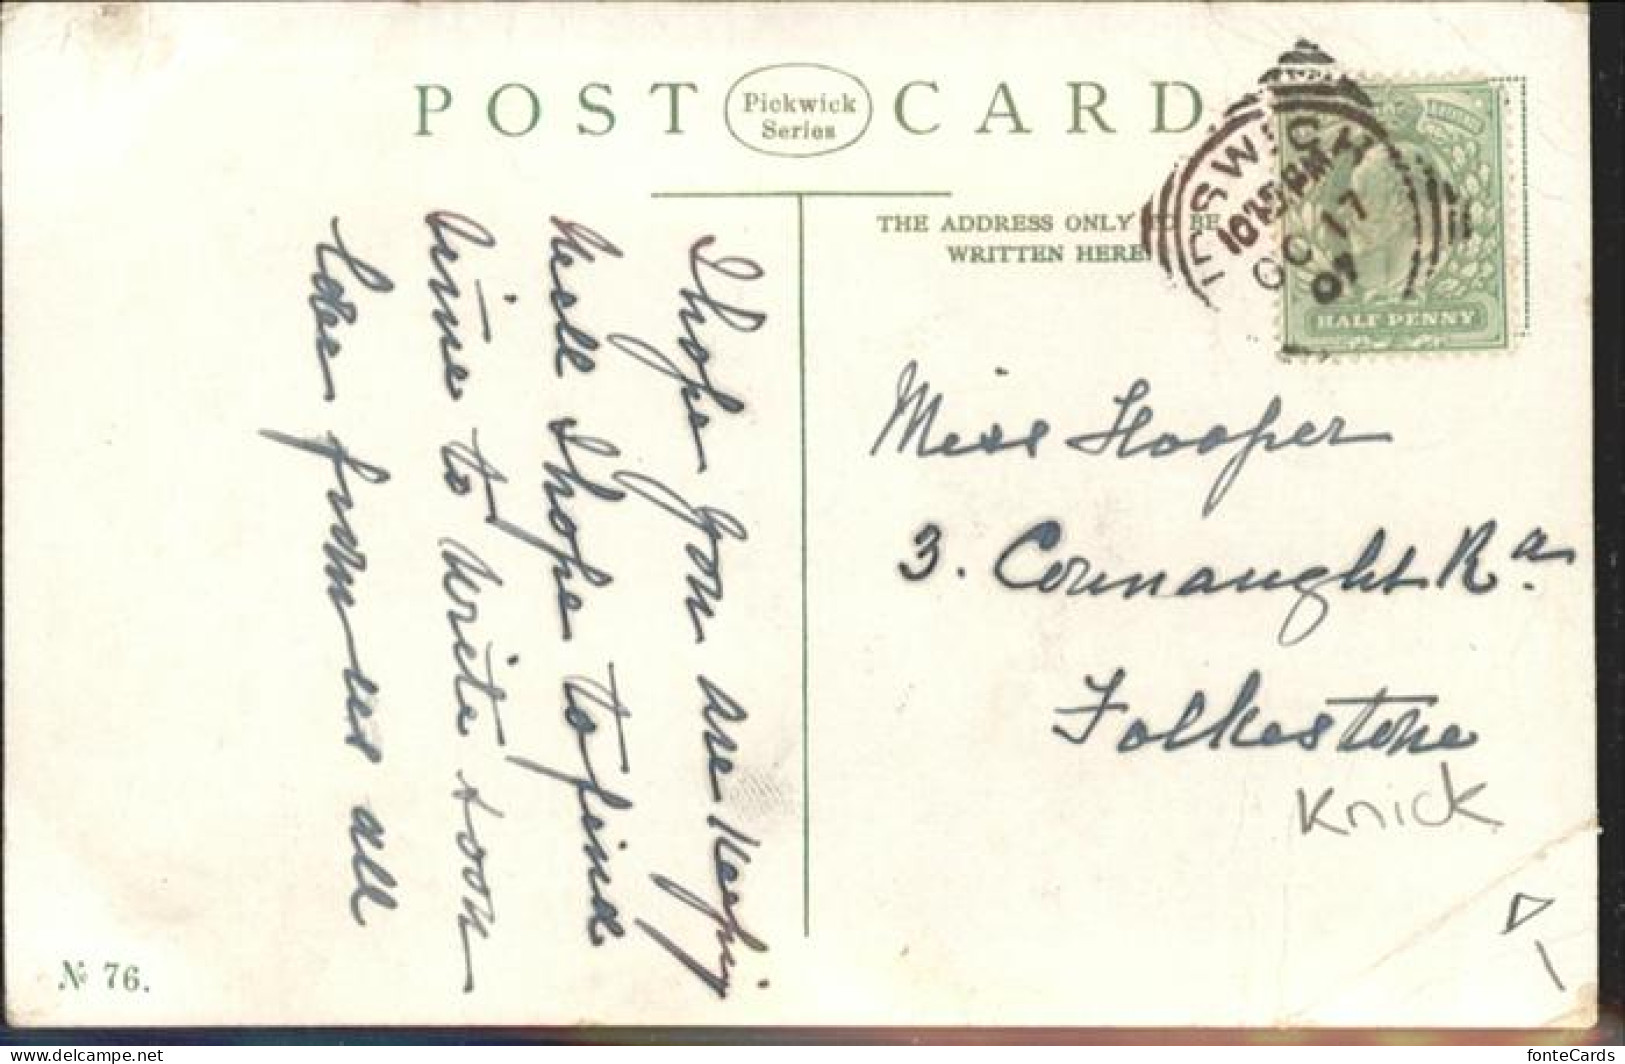 POST CARD
Pickwick
Series
THE ADDRESS ONLY TO BE
WRITTEN HERE.
IPSWICH
OC 17
07
HALF PENNY
I hope you are keepin
well I hope to find
time to write soon
from us all
Miss Hooper
3. Connaught Rd.
Folkestone
Knick
№ 76.
www.delcampe.net
fonteCards